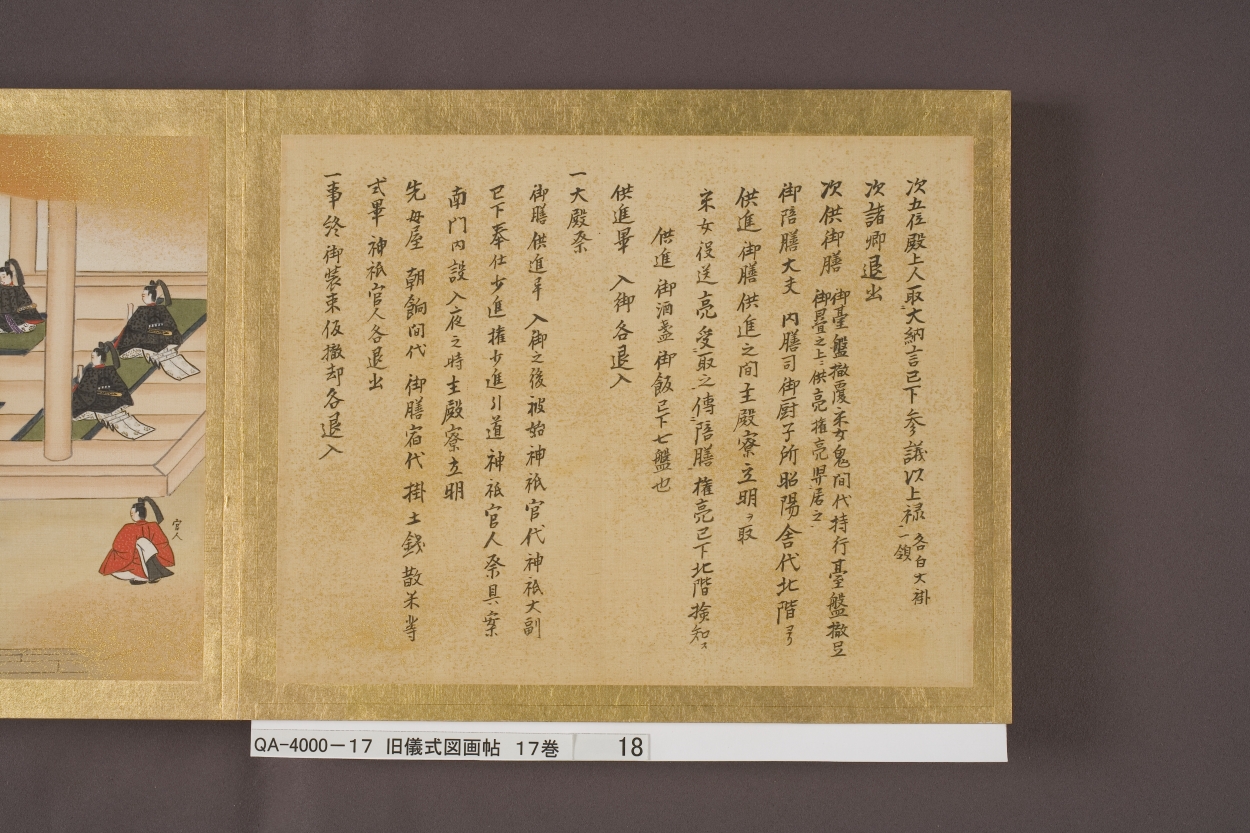 次五位殿上人取大納言已下参議以上禄 各白大褂一領
次諸卿退出
次供御膳 御臺盤撤覆采女鬼間代持行臺盤撤呈
御畳之上ニ供亮権亮舁居之
御陪膳大夫 内膳司御厨子所昭陽舎代北階ヨリ
供進御膳供進之間主殿寮立明ヲ取
采女役送亮受取之傳陪膳権亮已下北階撿知ス
供進御酒盞御飯已下七盤也
供進畢 入御各退入
一大殿祭
御膳供進畢入御之後被始神祇官代神祇大副
已下奉仕少進権少進引道神祇官人祭具案
南門内設入夜之時主殿寮立明
先母屋 朝餉間代 御膳宿代 掛土銭散米等
式畢神祇官人各退出
一事終御装束仮撤却各退入
官人
QA-4000-17 旧儀式図画帖 17巻 18